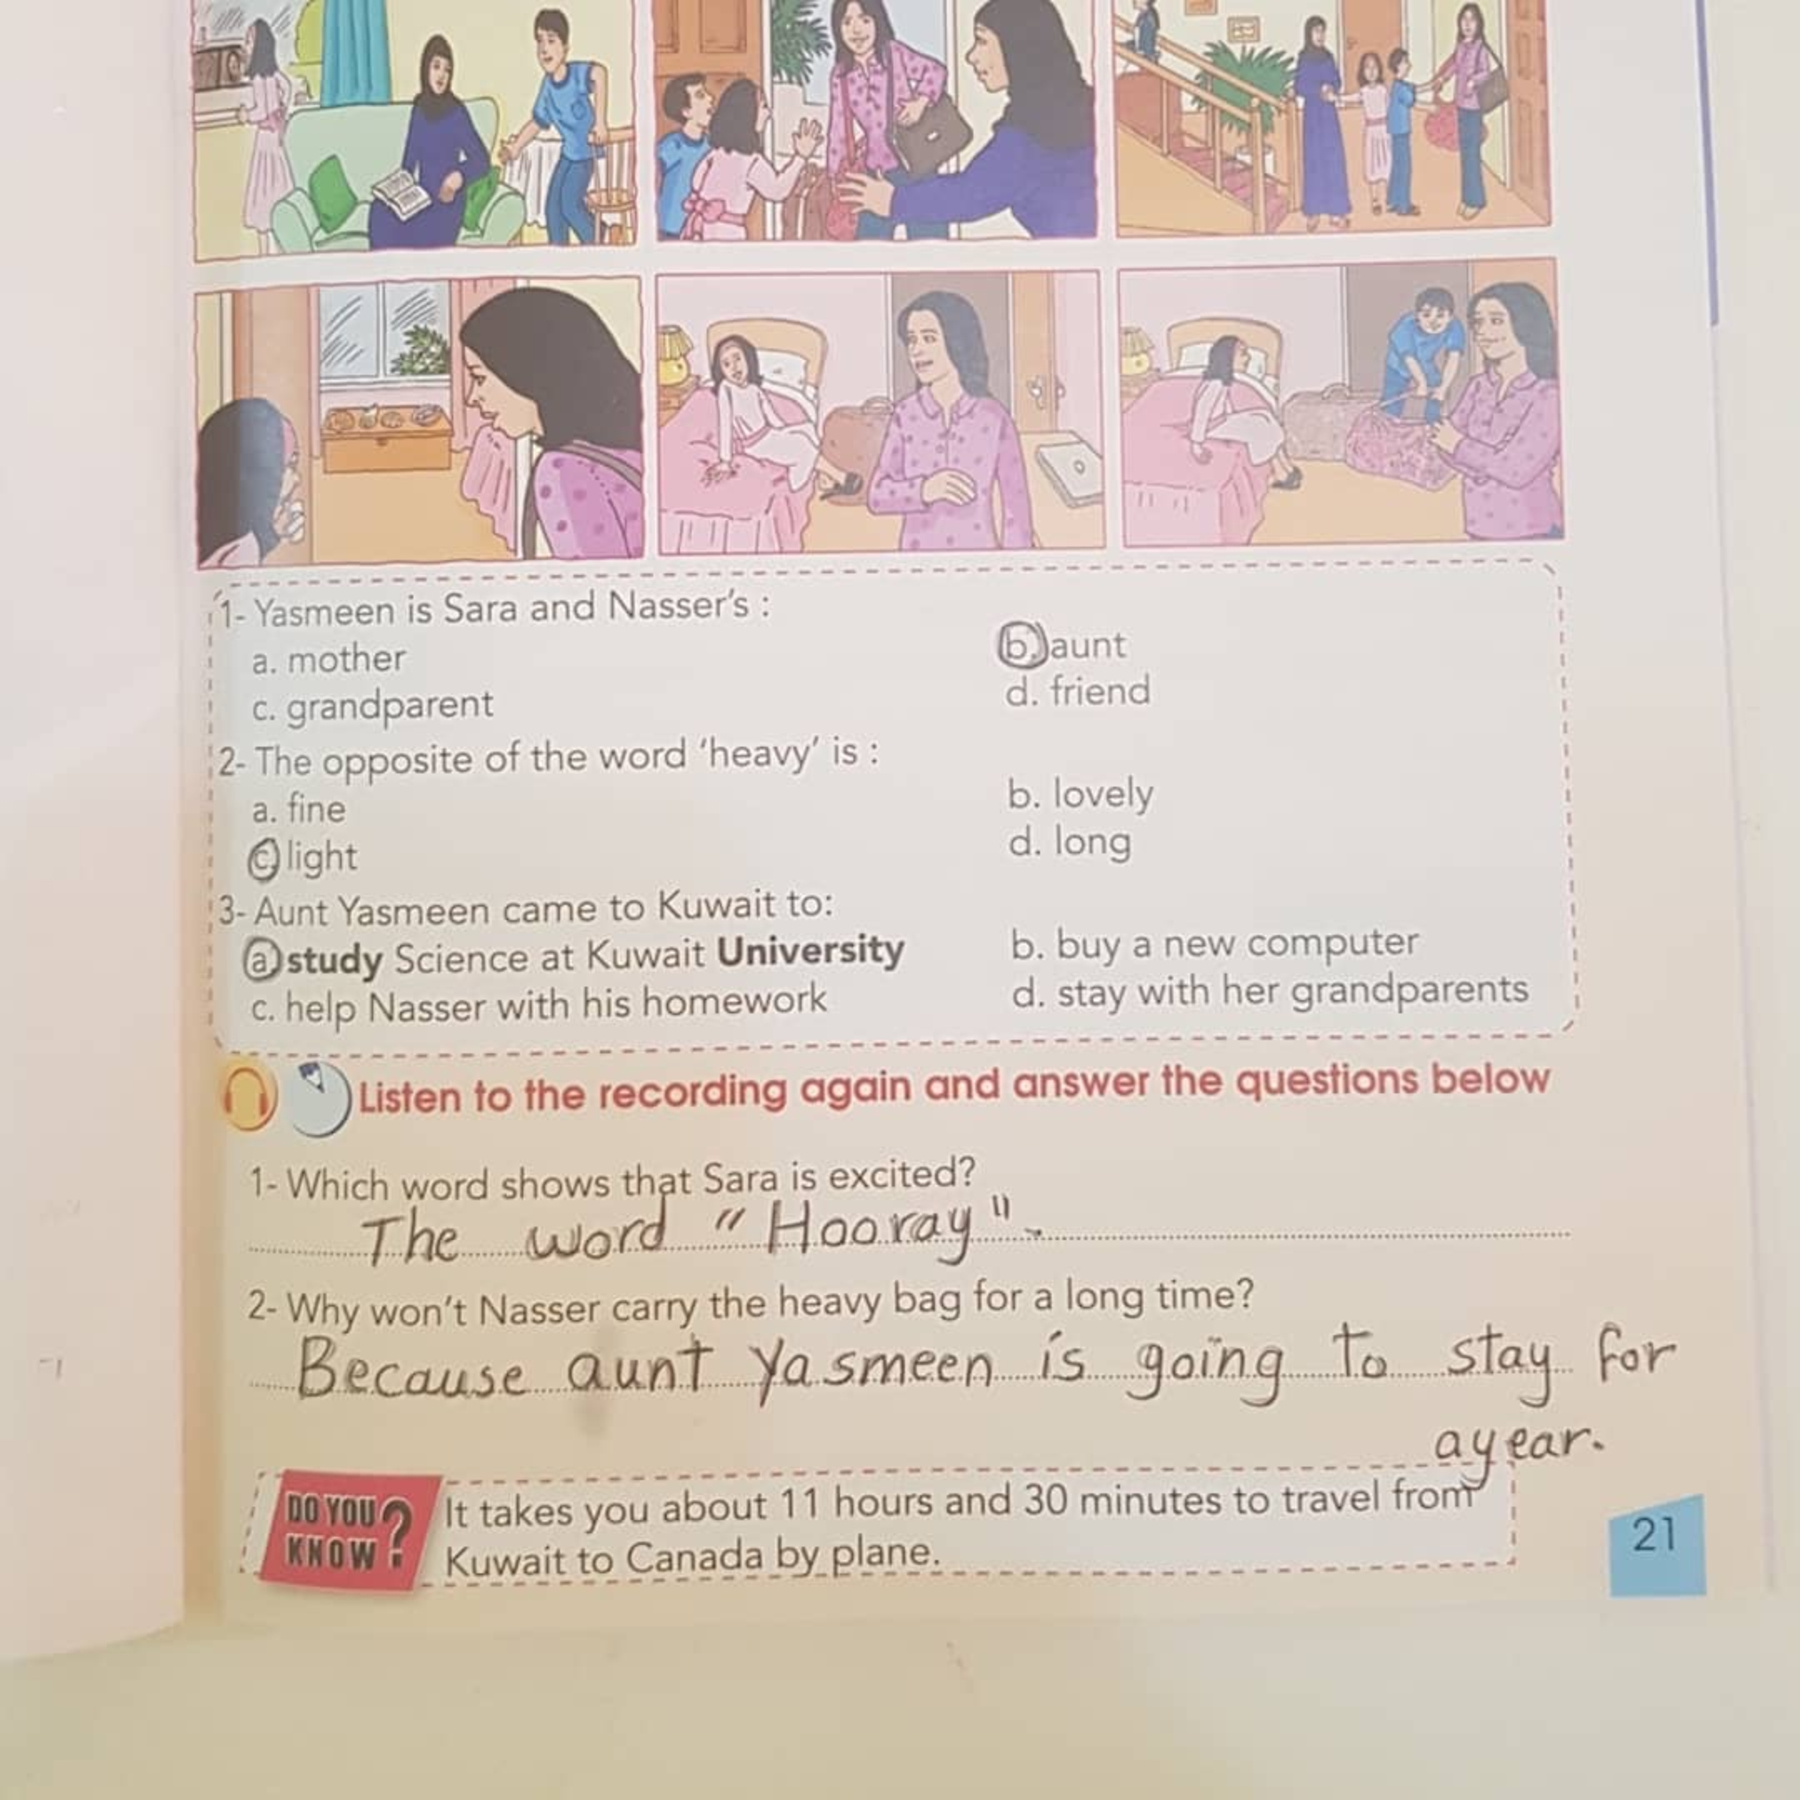 1- Yasmeen is Sara and Nasser's :
a. mother
b. aunt
c. grandparent
d. friend
2- The opposite of the word 'heavy' is :
a. fine
b. lovely
c. light
d. long
3- Aunt Yasmeen came to Kuwait to:
a. study Science at Kuwait University
b. buy a new computer
c. help Nasser with his homework
d. stay with her grandparents
Listen to the recording again and answer the questions below
1- Which word shows that Sara is excited?
The word "Hooray".
2- Why won't Nasser carry the heavy bag for a long time?
Because aunt Yasmeen is going to stay for
a year.
DO YOU
KNOW ?
It takes you about 11 hours and 30 minutes to travel from
Kuwait to Canada by plane.
21